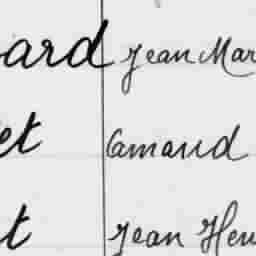 ard Jean Mar
et Amand
t Jean Hen